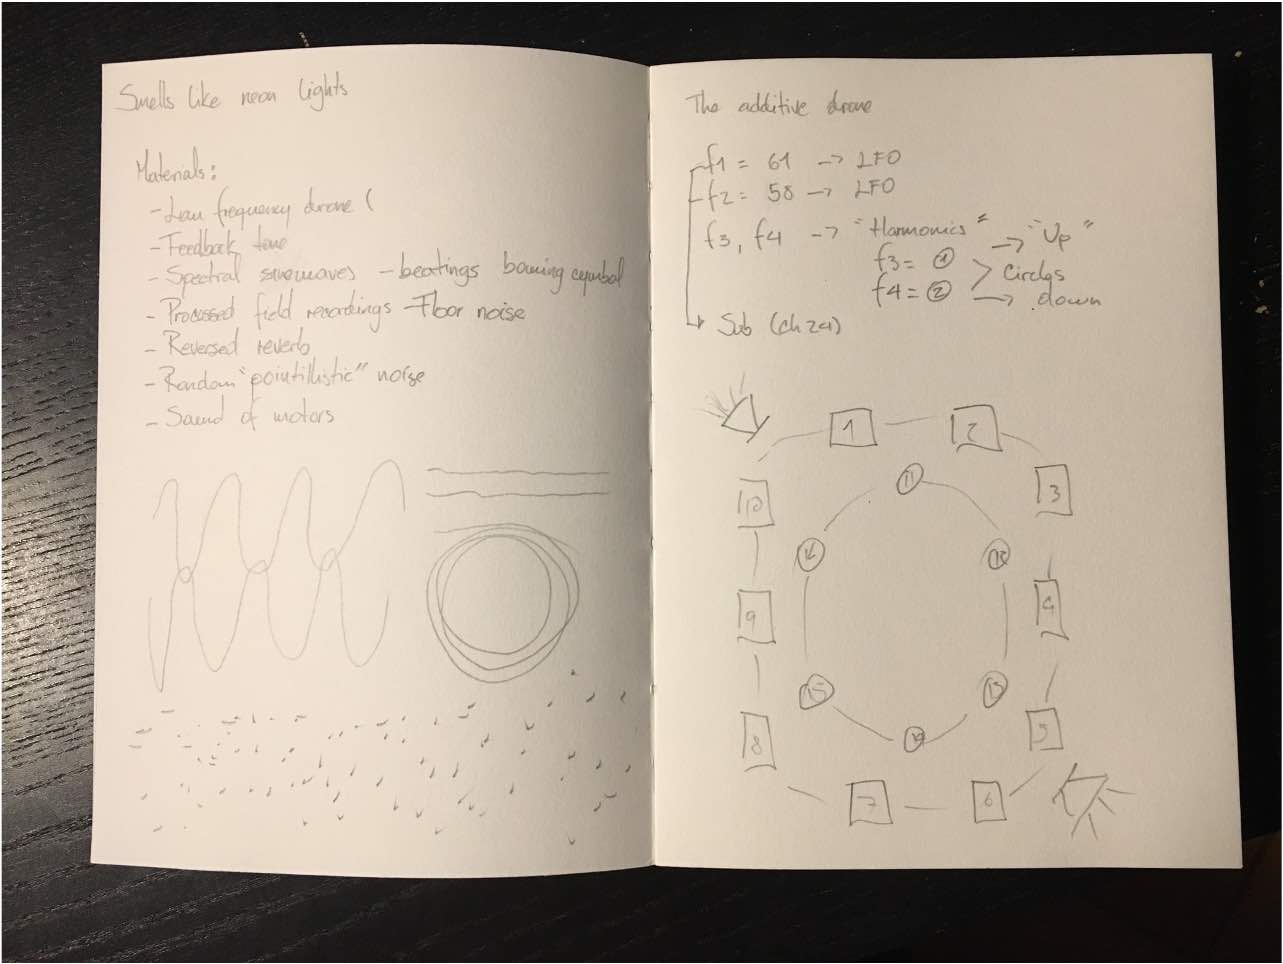 Smells like neon lights
Materials:
- Low frequency drone (
- Feedback tone
- Spectral sinewaves - beatings bowing cymbal
- Processed field recordings - Floor noise
- Reversed reverb
- Random "pointillistic" noise
- Sound of motors
The additive drone
f1 = 61 -> LFO
f2 = 58 -> LFO
f3, f4 -> "Harmonics" -> "Up"
f3 = ① > Circles
f4 = ② -> down
Sub (ch 24)
1 2
3
4
5
6
7
8
9
10
11
12
13
14
15
16